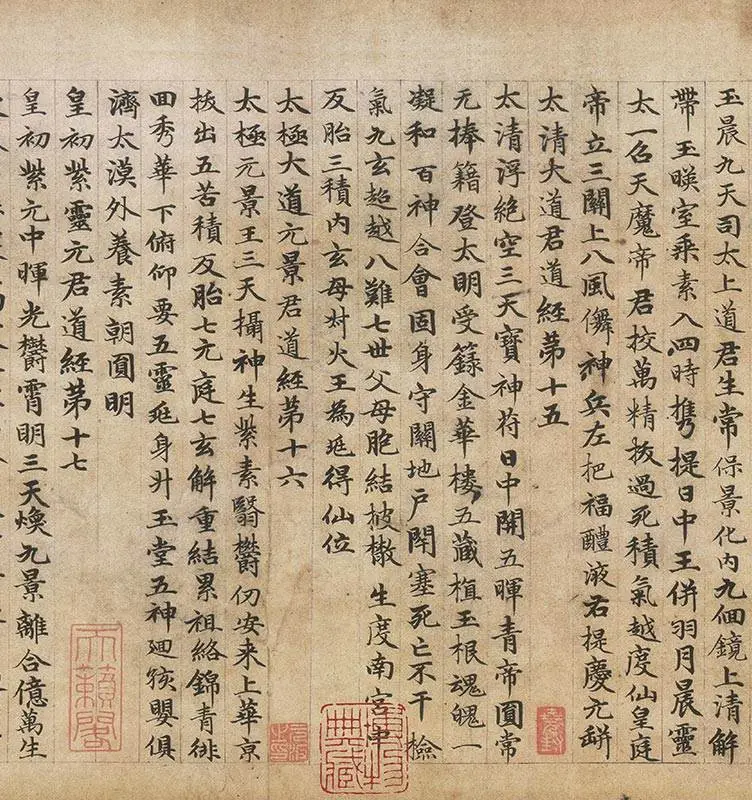 玉晨九天司太上道君生常保景化内九回鏡上清解
帶玉暎室乘素入四時攜提日中王併羽月晨靈
太一召天魔帝君校萬精拔過死積氣越度仙皇庭
帝立三關上八風儛神兵左把福醴液右提慶元缾
太清大道君道經第十五
太清浮絕空三天寶神符日中開五暉青帝圓常
无捧籍登太明受籙金華樓五藏植玉根魂魄一
凝和百神合會固身守關地戶閇塞死亡不干撿
氣九玄超越八難七世父母胞結披散生度南宮
反胎三積内玄母對火王為延得仙位
太極大道元景君道經第十六
太極元景王三天攝神生紫素翳欝仞安来上華京
拔出五苦積反胎七元庭七玄解重結累祖絡錦青徘
回秀華下俯仰要五靈延身升玉堂五神迴孩嬰俱
濟太漠外養素朝圓明
皇初紫靈元君道經第十七
皇初紫元中暉光欝霄明三天煥九景離合億萬生
天籟閣
典藏